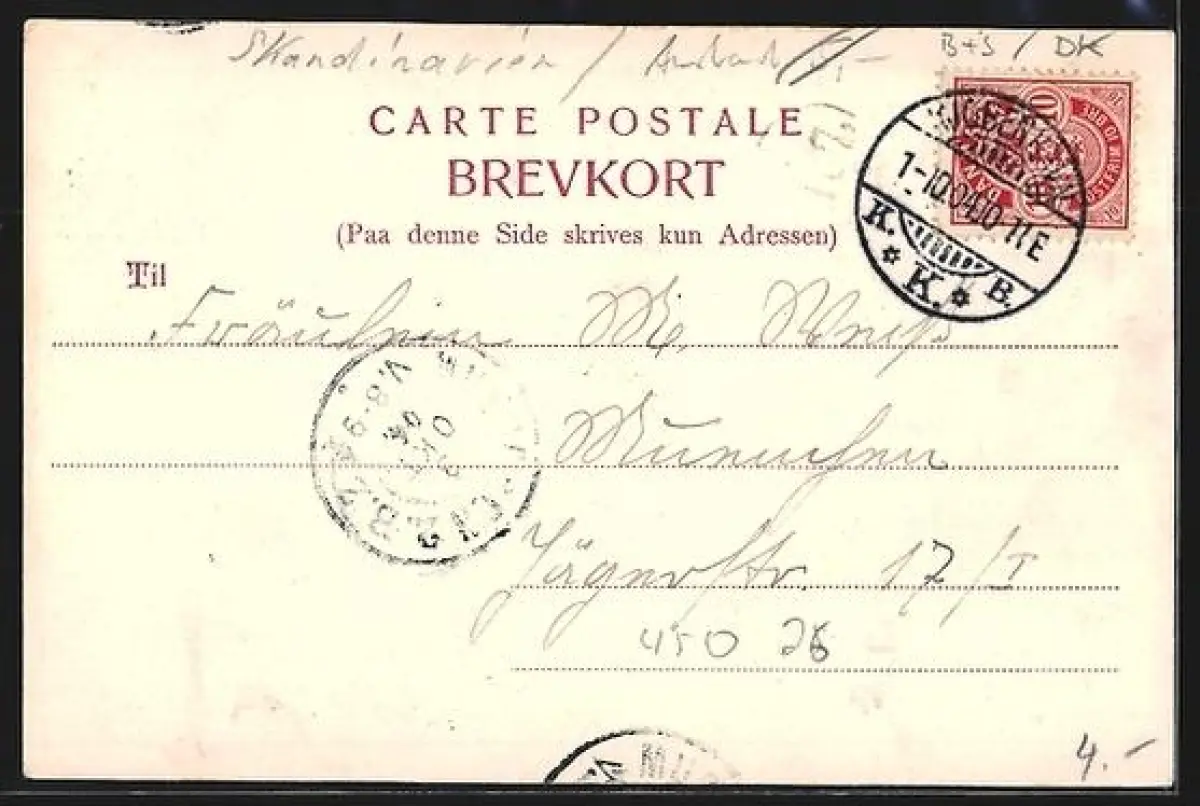 Skandinavien / 5,-
B+S / DK
CARTE POSTALE
BREVKORT
(Paa denne Side skrives kun Adressen)
KJØBENHAVN
1-10.04.10-11E
K. K. B.
Til
Fräulein M. Weiß
Muenchen
V.8-9
OKT
04
Jägerstr. 17/I
450 26
4.-